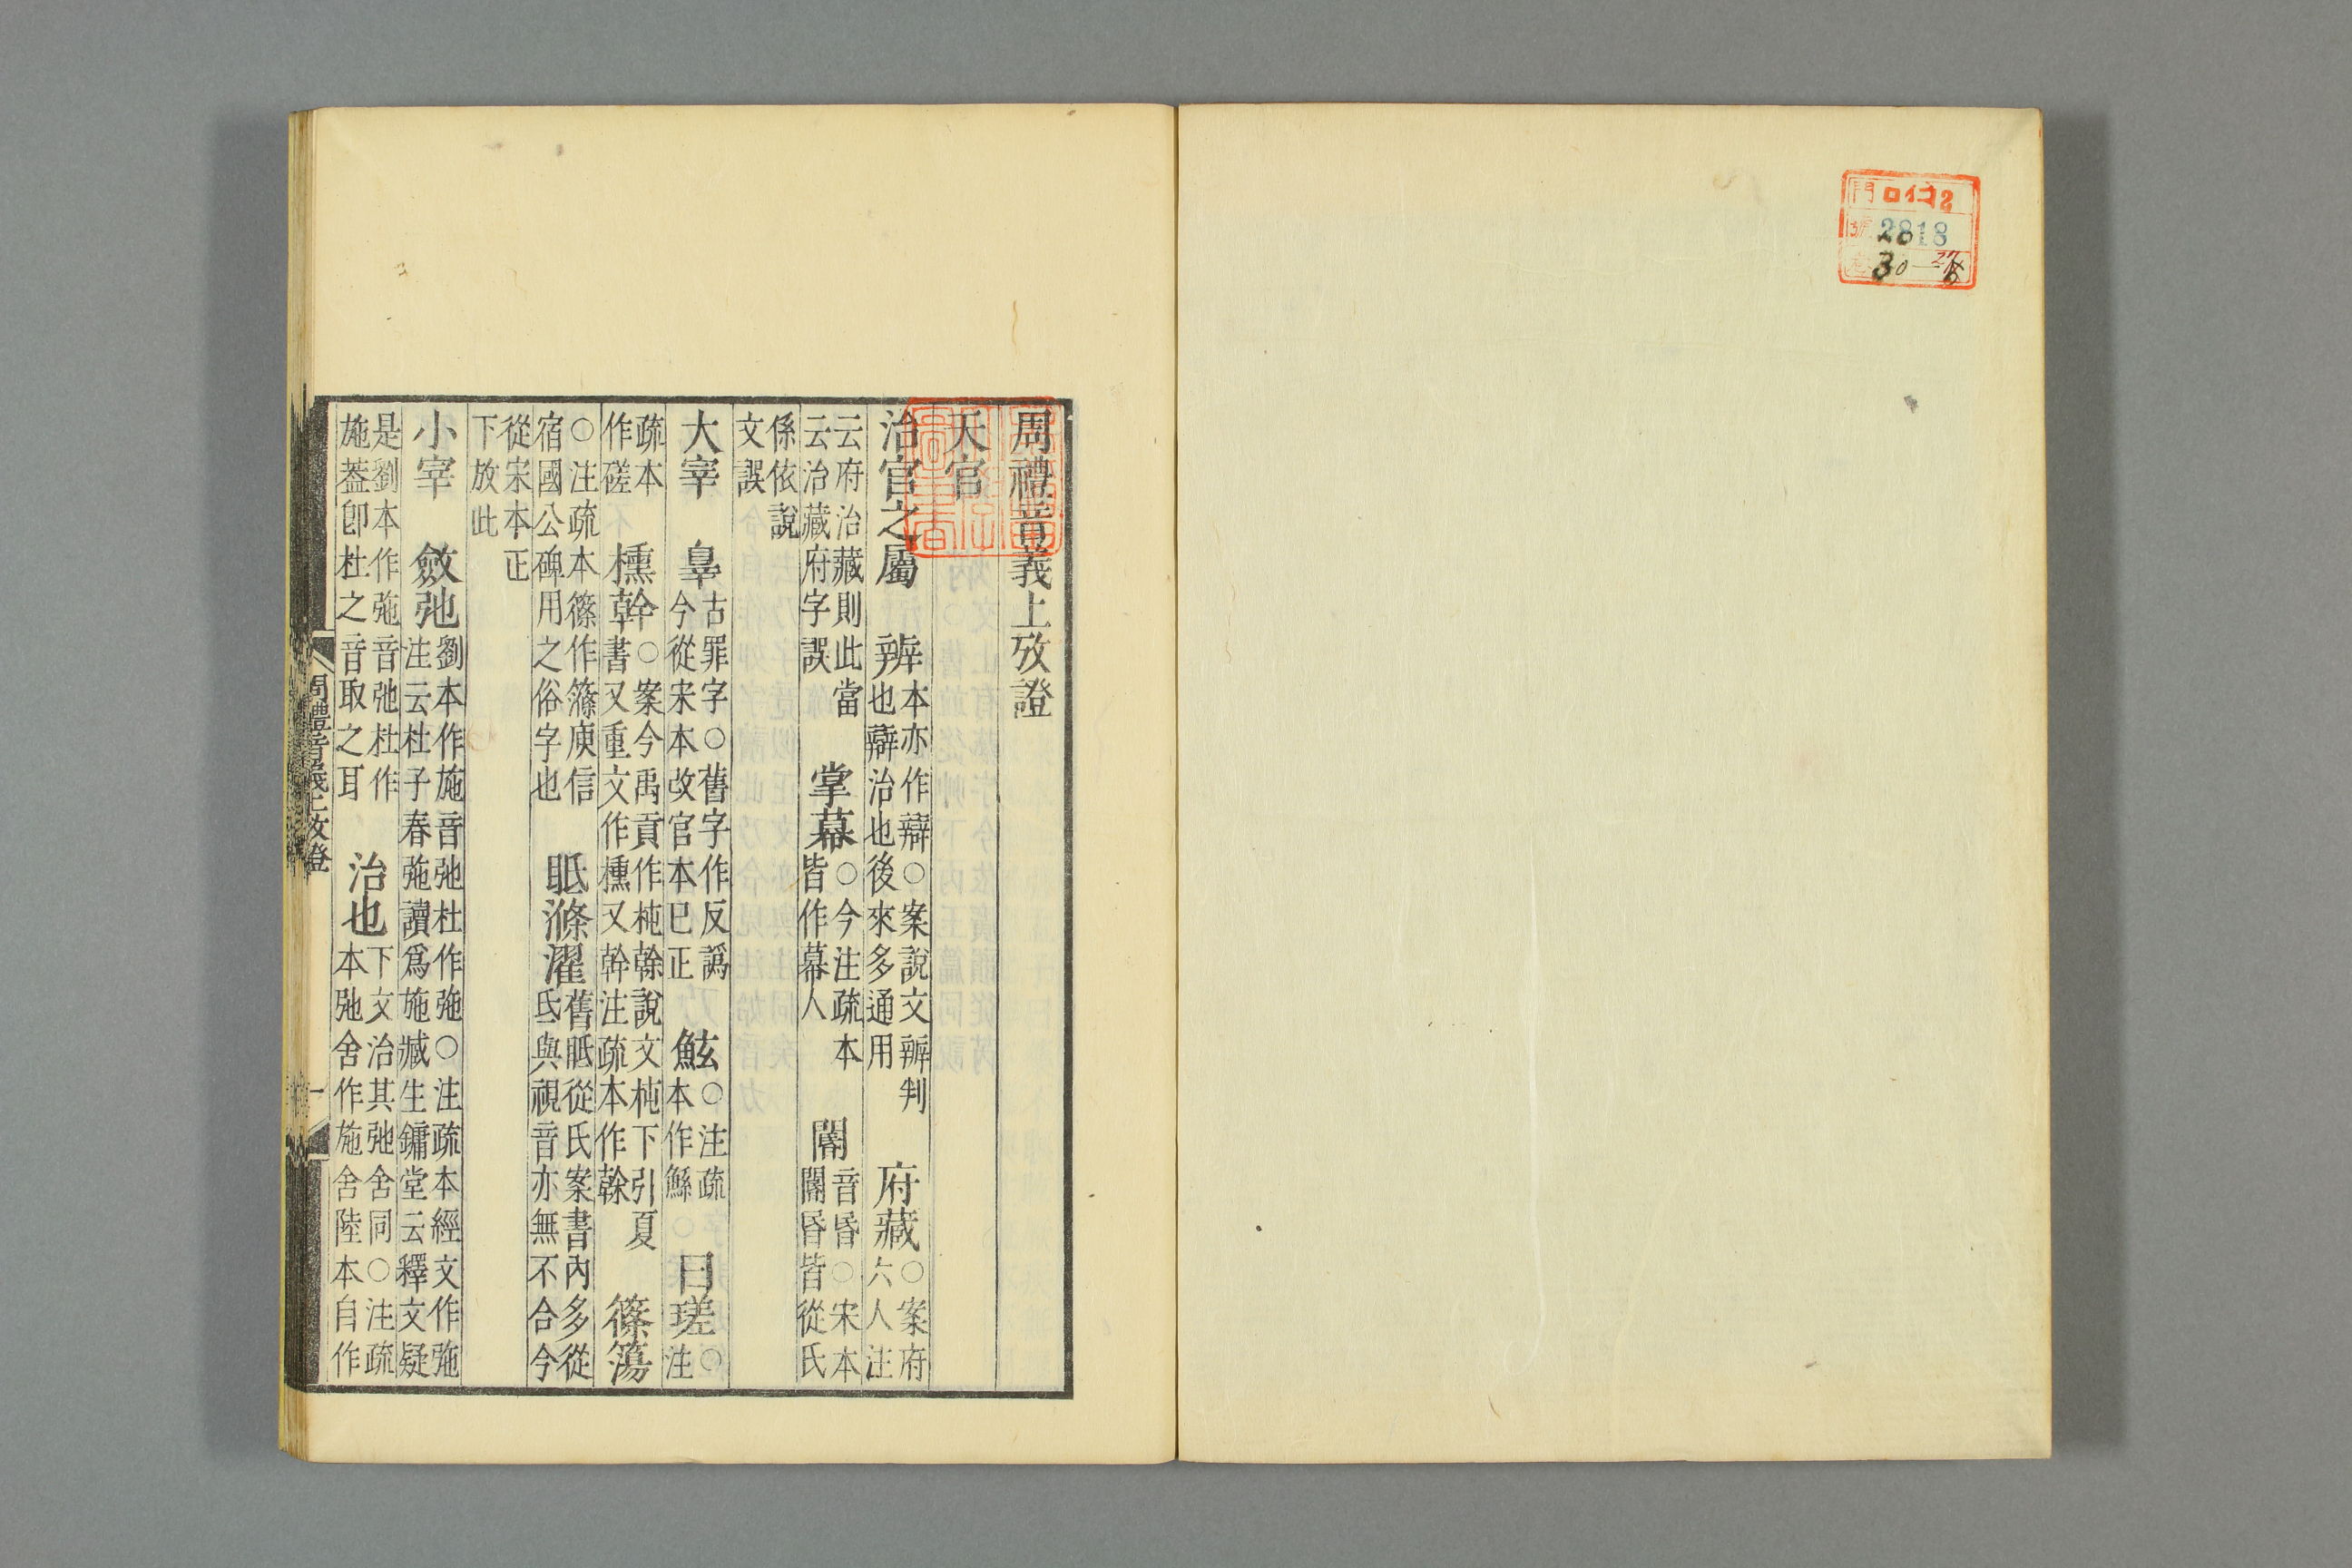 門 ロ12
號 2818
周禮音義上攷證
天官
治官之屬 辨本亦作辯○案說文辧判也辯治也後來多通用 府藏○案府六人注
云府治藏則此當云治藏府字誤 掌幕○今注疏本皆作幕人 閽音昏○宋本閽昏皆從氏
係依說文誤
大宰 辠古罪字○舊字作反譌今從宋本改官本已正 鮌○注疏本作鯀 曰瑳○注
疏本作磋 櫄幹○案今禹貢作杶榦說文杶下引夏書又重文作櫄又幹注疏本作榦 篠簜
○注疏本篠作篠庾信宿國公碑用之俗字也 眡滌濯舊眡從氏案書內多從氐與視音亦無不合今
從宋本正下放此
小宰 斂弛劉本作施音弛杜作㢮○注疏本經文作㢮注云杜子春㢮讀爲施臧生鏞堂云釋文疑
是劉本作㢮音弛杜作施葢卽杜之音取之耳 治也下文治其弛舍同○注疏本弛舍作施舍陸本自作
周禮音義上攷證 一